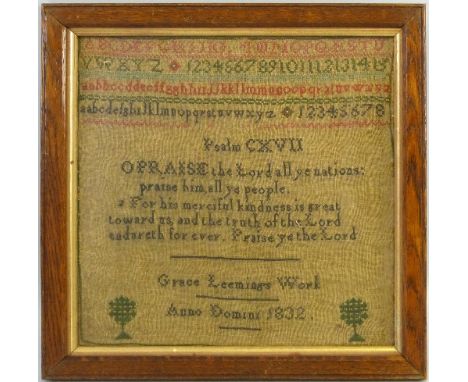 ABCDEFGHIJKLMNOPQRSTU
VWXYZ 123456789101112131415
aabbccddeeffgghhiijJkkllmmnnooppqrstuvwxyz
aabcdefghiJklmnopqrstuvwxyz 12345678
Psalm CXVII
O PRAISE the Lord all ye nations:
praise him, all ye people.
2 For his merciful kindness is great
toward us, and the truth of the Lord
endureth for ever. Praise ye the Lord
Grace Leemings Work
Anno Domini 1832